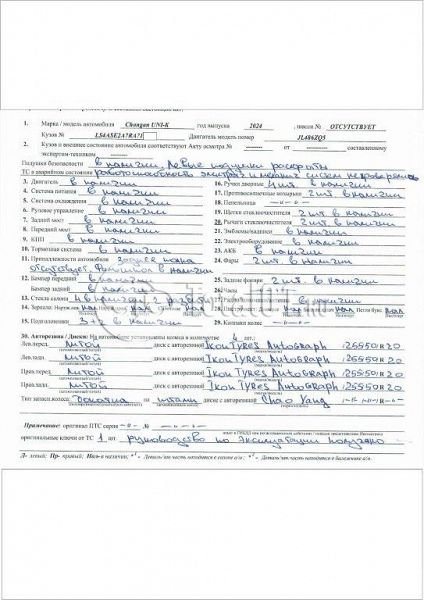 1. Марка / модель автомобиля Changan UNI-K год выпуска 2024 шасси № ОТСУТСТВУЕТ
Кузов № LS4ASE2A7RA71 Двигатель модель номер JL486ZQ5
2. Кузов и внешнее состояние автомобиля соответствуют Акту осмотра № ------- от ------- составленному
экспертом-техником -------
Подушки безопасности в наличии. Левые подушки раскрыты
ТС в аварийном состоянии работоспособность систем не проверялась
3. Двигатель в наличии
4. Система питания в наличии
5. Система охлаждения в наличии
6. Рулевое управление в наличии
7. Задний мост в наличии
8. Передний мост в наличии
9. КПП в наличии
10. Тормозная система в наличии
11. Принадлежности автомобиля
отсутствует. в наличии
12. Бампер передний в наличии
Бампер задний в наличии
13. Стекла салона 4 в наличии 2
14. Зеркала:
15. Подголовники 3+2 в наличии
16. Ручки дверные 4 шт. в наличии
17. Противосолнечные козырьки 2 шт. в наличии
18. Пепельница -о-о-
19. Щетки стеклоочистителя 2 шт. в наличии
20. Рычаги стеклоочистителя 2 шт. в наличии
21. Эмблемы/надписи в наличии
22. Электрооборудование в наличии
23. АКБ в наличии
24. Фары 2 шт. в наличии
25. Задние фонари 2 шт. в наличии
26. Часы
в наличии
29. Колпаки колес -о-о-
30. Авторезина / Диски: На автомобиле установлены колеса в количестве 4 шт.:
Лев.передн. литой диск с авторезиной Ikon Tyres Autograph 265 50 R 20
Лев.задн. литой диск с авторезиной Ikon Tyres Autograph 265 50 R 20
Прав.перед. литой диск с авторезиной Ikon Tyres Autograph 265 50 R 20
Прав.задн. литой диск с авторезиной Ikon Tyres Autograph 265 50 R 20
Тип запасн.колеса: докатка на штамп. диске с авторезиной Chao Yang
Примечание: оригинал ПТС серия -о- № -о-о-о-
оригинальные ключи от ТС 1 шт. руководство по эксплуатации получено
Л- левый; Пр- правый; Нал-в наличии;